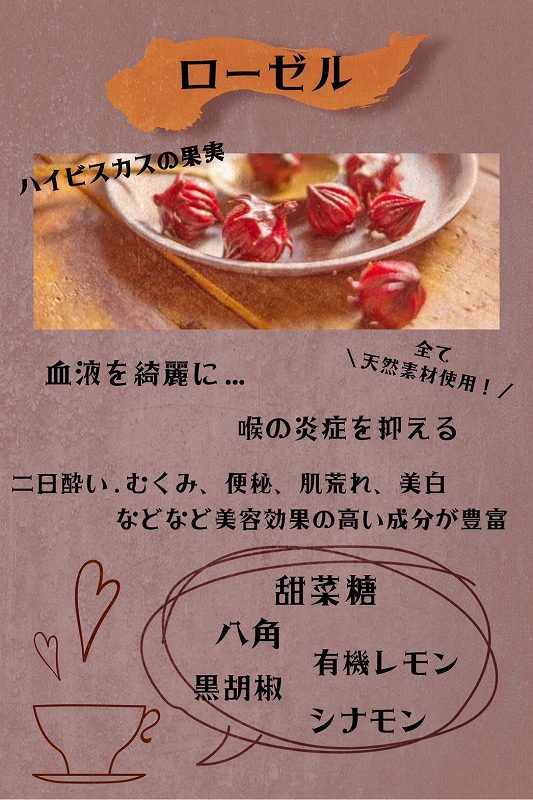 ローゼル
ハイビスカスの果実
血液を綺麗に…
\ 全て
天然素材使用！ /
喉の炎症を抑える
二日酔い.むくみ、便秘、肌荒れ、美白
などなど美容効果の高い成分が豊富
甜菜糖
八角
有機レモン
黒胡椒
シナモン